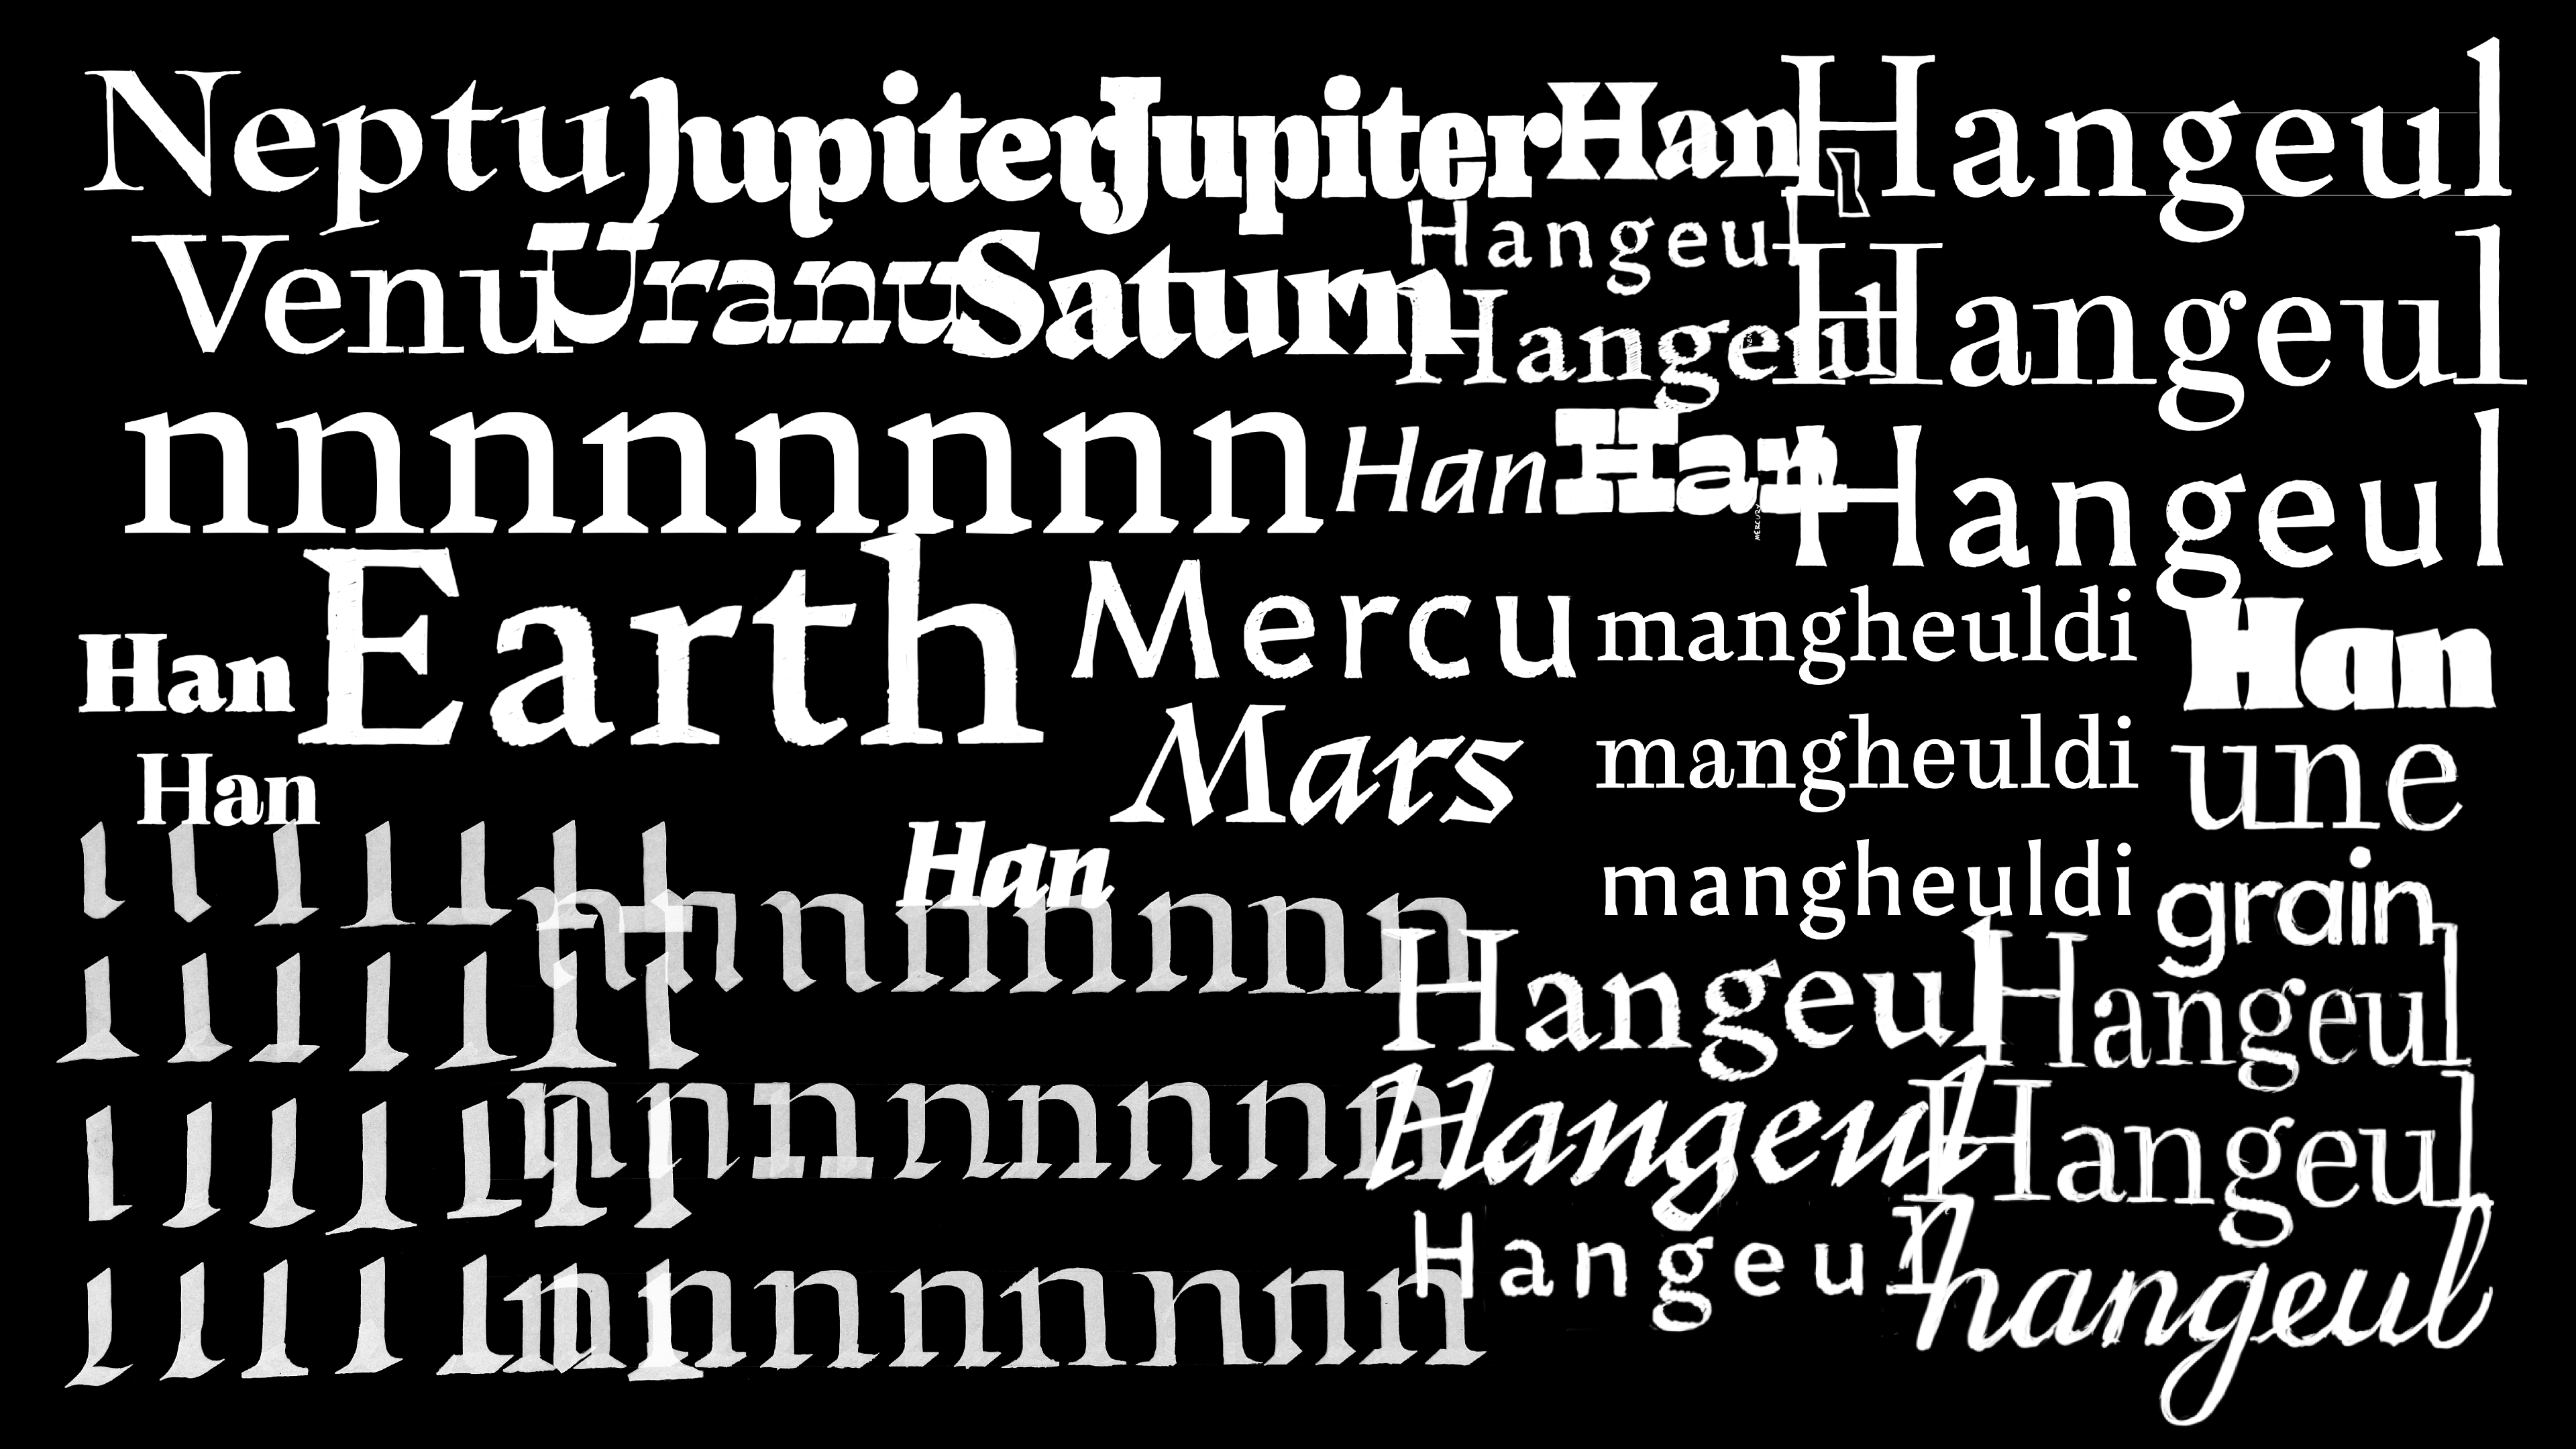 Neptu Jupiter Jupiter Han Hangeul
Hangeul
Venu Uranu Saturn Hangeul Hangeul
nnnnnnnn Han Han Hangeul
MERCURY
Han Earth Mercu mangheuldi Han
Han Mars mangheuldi une
Han mangheuldi grain
l l l l l l l
n n n n n n n n Hangeul Hangeul
l l l l l l l
n n n n n n n n Hangeul Hangeul
l l l l l l l
Hangeul hangeul
l l l l l l n n n n n n n n